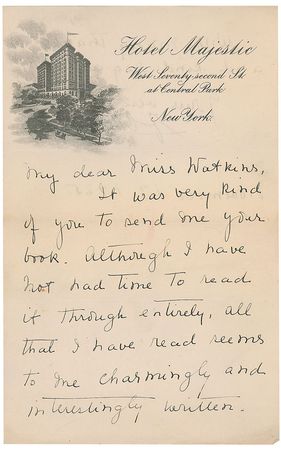 Hotel Majestic
West Seventy second St
at Central Park
New York.
My dear Miss Watkins,
It was very kind
of you to send me your
book. Although I have
not had time to read
it through entirely, all
that I have read seems
to me charmingly and
interestingly written.